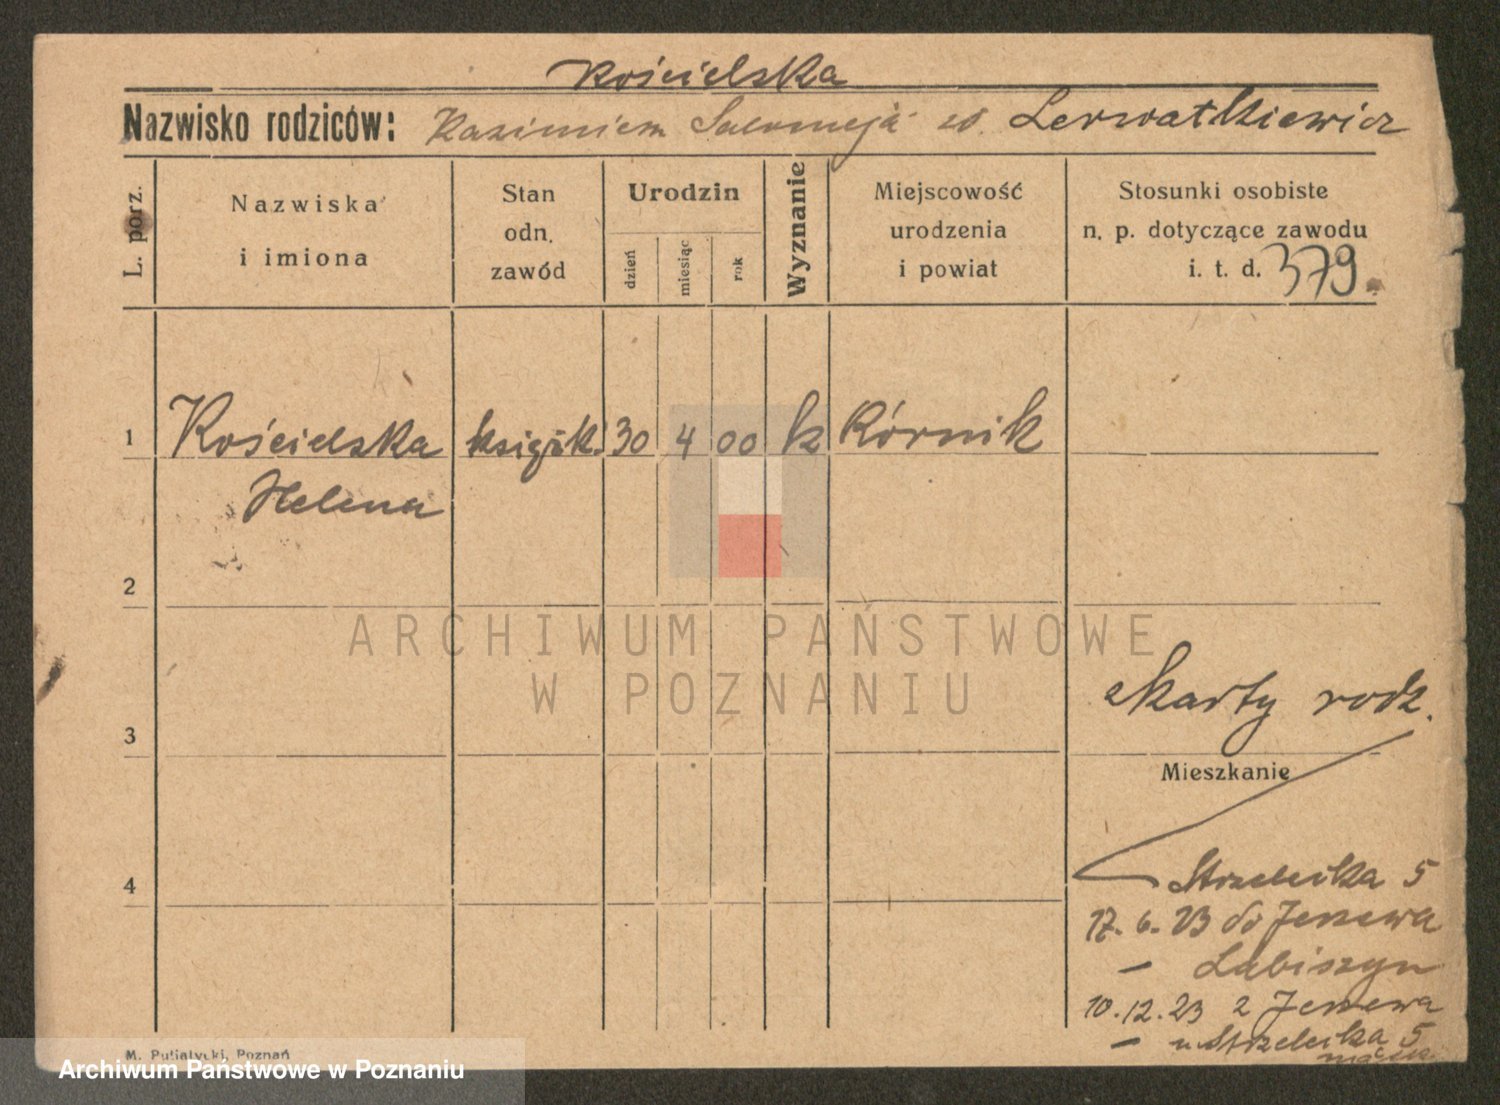 Kościelska
Nazwisko rodziców: Kazimierz Salomeja z d. Lerwatkiewicz
L. porz.
Nazwiska
i imiona
Stan
odn.
zawód
Urodzin
dzień
miesiąc
rok
Wyznanie
Miejscowość
urodzenia
i powiat
Stosunki osobiste
n. p. dotyczące zawodu
i. t. d. 379.
1 Kościelska książk. 30 4 00 k Kórnik
Helena
2
ARCHIWUM PAŃSTWOWE
W POZNANIU
z karty rodz.
3
Mieszkanie
4
Strzelecka 5
17. 6. 23 do Jerzewa
— Łabiszyn
10. 12. 23 z Jerzewa
— u. Strzelecka 5
M. Putiatycki, Poznań
Archiwum Państwowe w Poznaniu